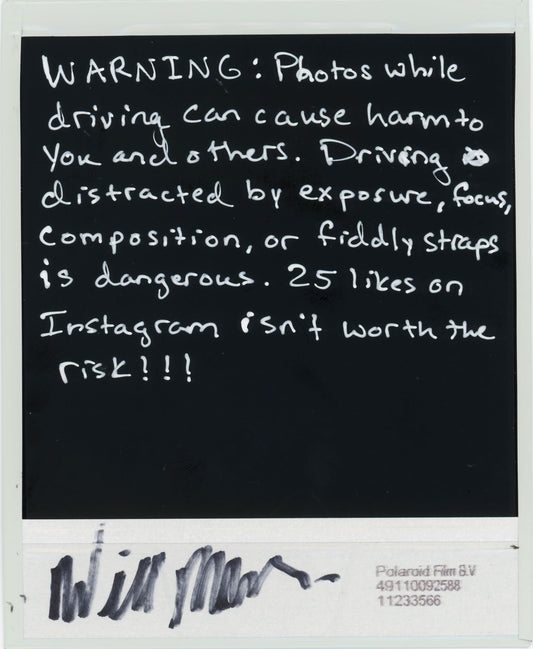 WARNING: Photos while
driving can cause harm to
you and others. Driving
distracted by exposure, focus,
composition, or fiddly straps
is dangerous. 25 likes on
Instagram isn't worth the
risk!!!
Will
Polaroid Film B.V
49110092588
11233566